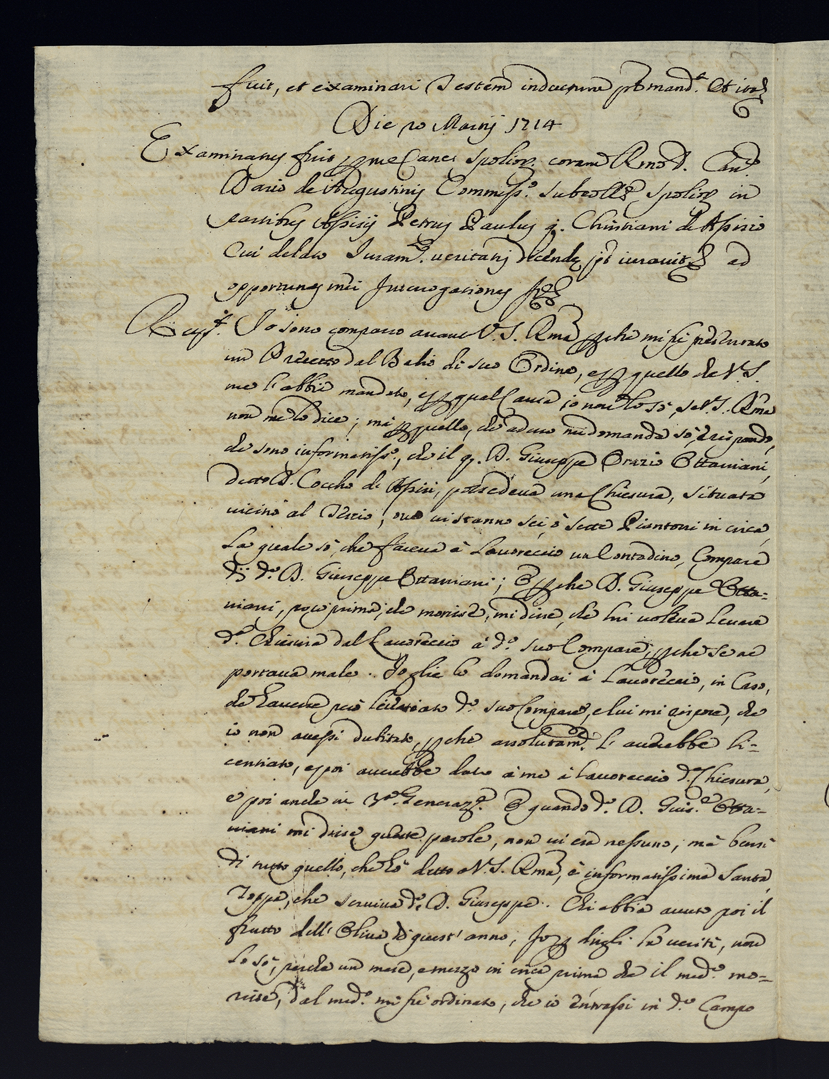 fuit, et examinari Testem inductum p mand.t et ita
Die 20 Maij 1714
Examinatus fuit p me Canc. Spolior. coram Rmo D. Can.
Dario de Augustinis Commiss.o Subcoll. Spolior. in
partibus Assisij Petrus Paulus q. Christiani de Assisio
Cui delato Juram.to veritatis dicende, pt iuravit ad
opportunas mei Interrogationes
Resp.t Io sono comparso avanti V. S. Rma p che mi fù presentato
un Precetto dal Balio di suo Ordine, e p quello che V. S.
me l'abbia mandato, e p qual causa io non lo sò, se V. S. Rma
non me lo dice; mà p quello, che adesso mi domanda sò, e rispondo,
che sono informatiss.o, che il q. D. Giuseppe Orazio Ottaviani,
detto D. Coccho di Assisi, possedeva una Chiesura, situata
vicino al Tescio, ove vi stanno sei, ò sette Piantoni in circa,
La quale sò, che faceva à Lavoreccio un Contadino, Compare
di d.o D. Giuseppe Ottaviani; E p che D. Giuseppe Otta-
viani, poco prima, che morisse, mi disse, che lui voleva Levare
d.a Chiesura dal Lavoreccio à d.o suo Compare, p che se ne
portava male. Io glie la domandai à Lavoreccio, in caso,
che havesse però licentiato d.o suo Compare, e lui mi rispose, che
io non avessi dubitato, p che assolutam.te l'avrebbe li-
centiato, e poi avrebbe dato à me à Lavoreccio d.a Chiesura,
e poi anche in 3.a Generaz.e E quando d.o D. Gius.e Otta-
viani mi disse queste parole, non vi era nessuno, mà bensì
di tutto quello, che hò detto à V. S. Rma, è informatissima Santa
Toppa, che serviva d.o D. Giuseppe. Chi abbia avuto poi il
frutto dell'Oliva di quest'anno, Io p dirgli la verità, non
lo sò, perche un mese, e mezzo in circa prima che il med.o mo-
risse, dal med.o mi fù ordinato, che io entrassi in d.o Campo